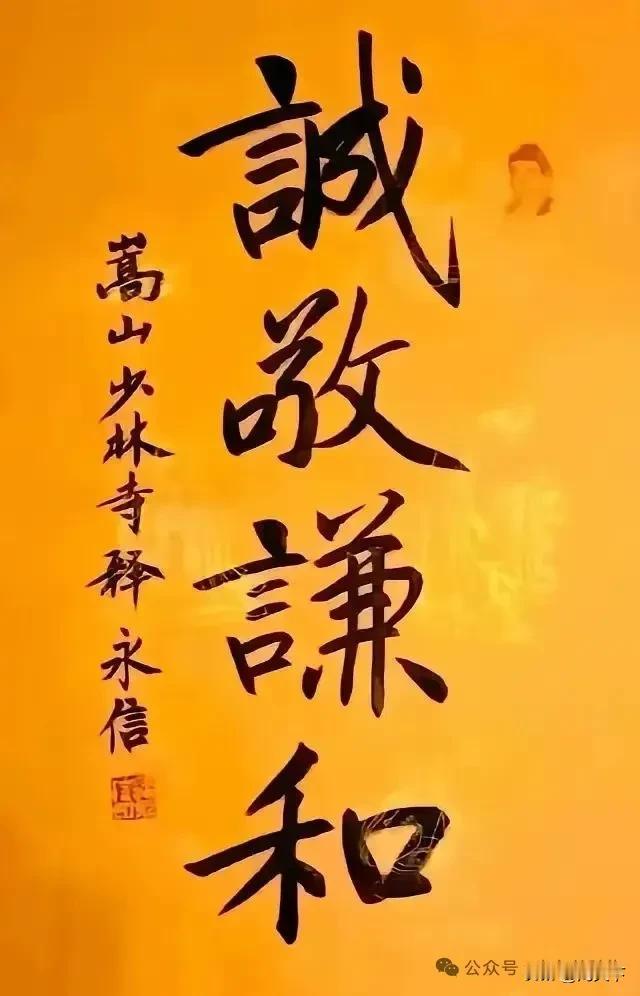 誠敬謙和
嵩山少林寺釋永信
公众号